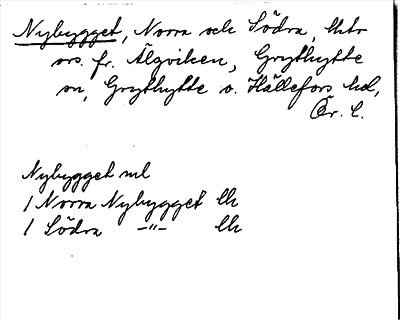 Nybygget, Norra och Södra, lhtr
ors. fr. Älgviken, Grythytte
sn, Grythytte o. Hällefors hd,
Ör. l.
Nybygget ml
1 Norra Nybygget lh
1 Södra -"- lh